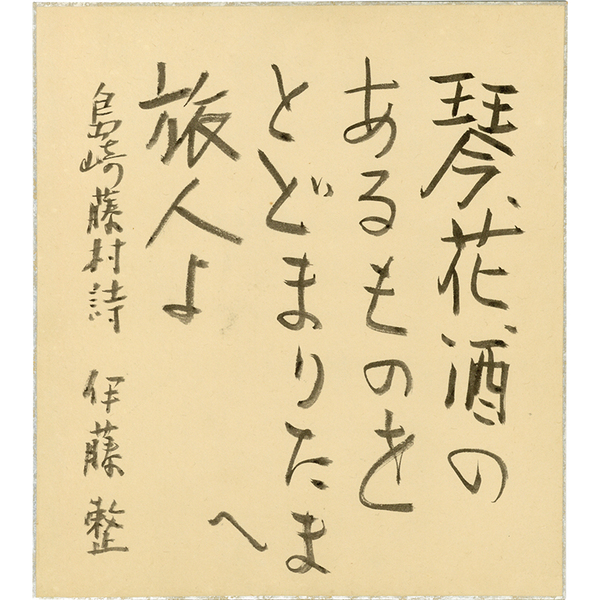 琴、花、酒の
あるものを
とゞまりたま
へ
旅人よ
島崎藤村詩 伊藤整